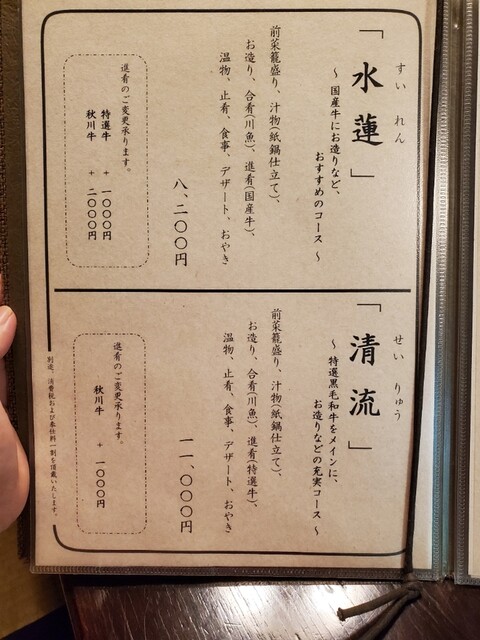 すいれん
「水蓮」
～ 国産牛にお造りなど、
おすすめのコース ～
前菜籠盛り、汁物(紙鍋仕立て)、
お造り、合肴(川魚)、進肴(国産牛)、
温物、止肴、食事、デザート、おやき
八、二〇〇円
進肴のご変更承ります。
特選牛 + 一〇〇〇円
秋川牛 + 二〇〇〇円
せいりゅう
「清流」
～ 特選黒毛和牛をメインに、
お造りなどの充実コース ～
前菜籠盛り、汁物(紙鍋仕立て)、
お造り、合肴(川魚)、進肴(特選牛)、
温物、止肴、食事、デザート、おやき
一一、〇〇〇円
進肴のご変更承ります。
秋川牛 + 一〇〇〇円
別途、消費税および奉仕料一割を頂戴いたします。